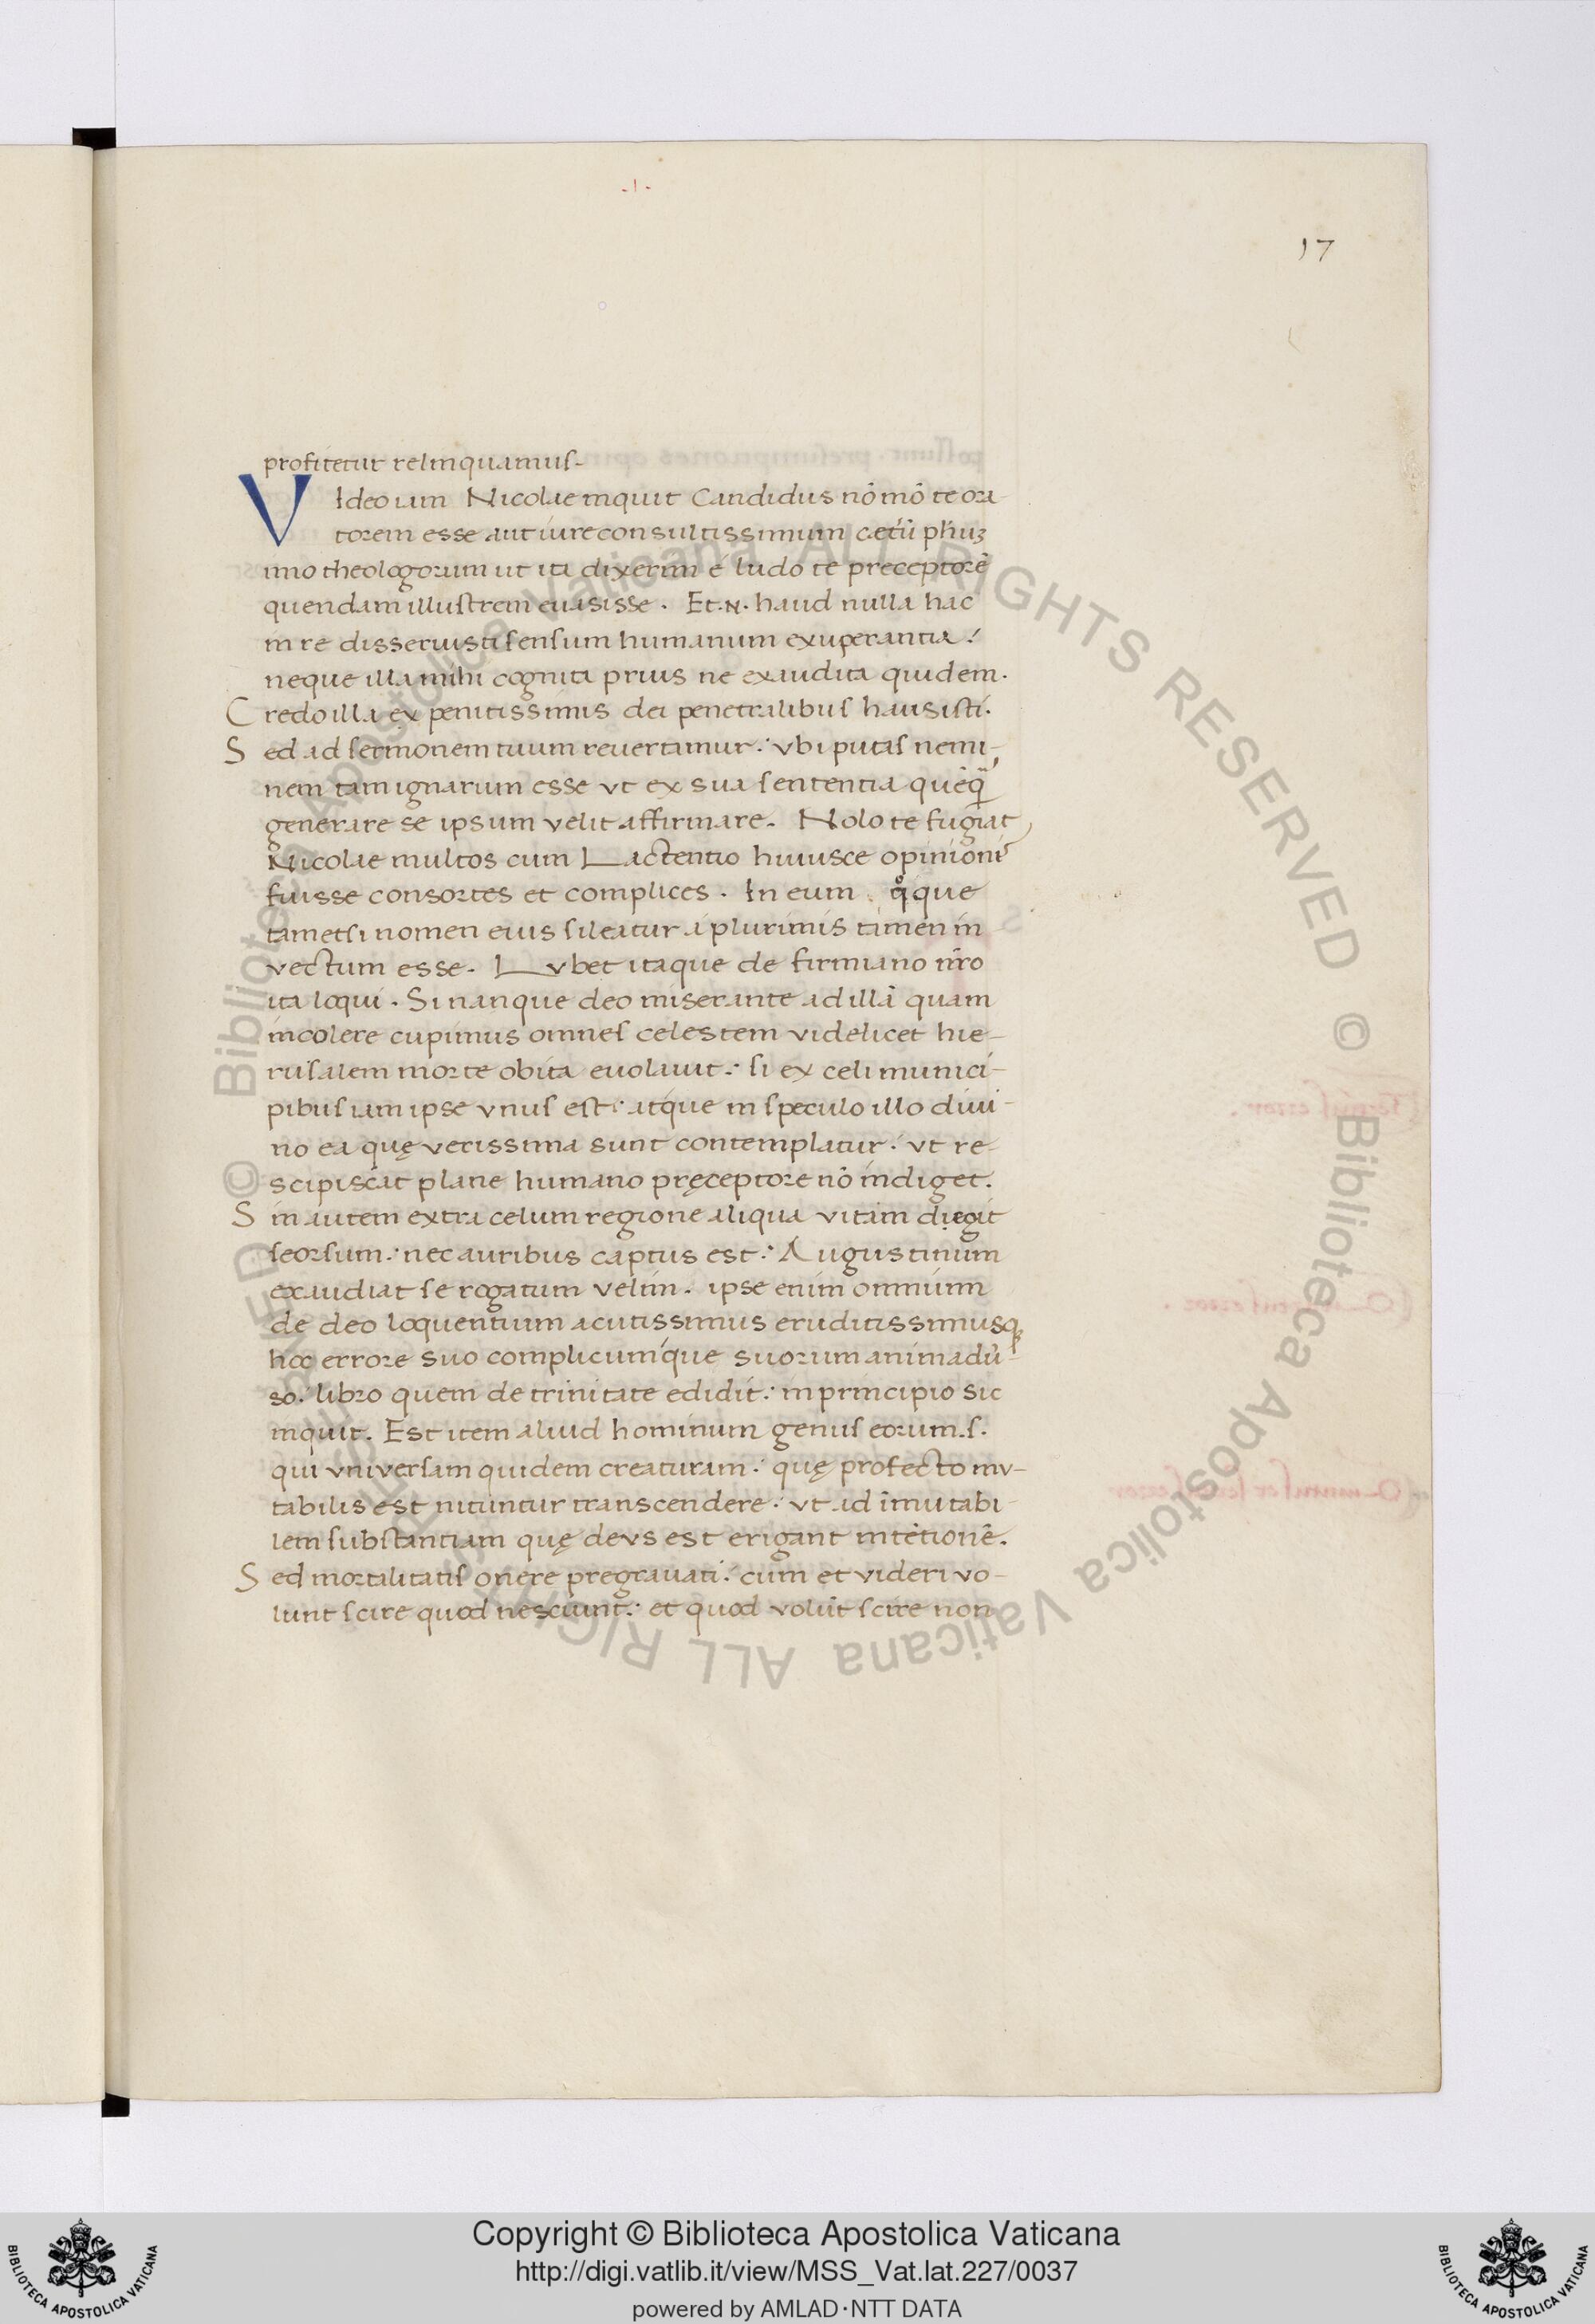 -1-
17
profitetur relinquamus.
VIdeo iam Nicolae inquit Candidus nō mō te ora-
torem esse aut iureconsultissimum cetū phūꝫ
imo theologorum ut ita dixerim é ludo te preceptorē
quendam illustrem euasisse. Et.N. haud nulla hac
in re disseruisti sensum humanum exuperantia:
neque illa mihi cognita prius ne exaudita quidem.
Credo illa ex penitissimis dei penetralibus hausisti.
Sed ad sermonem tuum reuertamur: vbi putas nemi-
nem tam ignarum esse vt ex sua sententia quēq̃
generare se ipsum velit affirmare. Nolo te fugiat
Nicolae multos cum Lactentio huiusce opinionis
fuisse consortes et complices. In eum qͦque
tametsi nomen eius sileatur a plurimis tamen in
vectum esse. Lvbet itaque de firmiano nr̄o
ita loqui. Si nanque deo miserante ad illā quam
incolere cupimus omnes celestem videlicet hie-
rusalem morte obita euolauit: si ex celi munici-
pibus iam ipse vnus est: atque in speculo illo diui-
no ea quę verissima sunt contemplatur: vt re-
scipiscat plane humano pręceptore nō indiget.
Sin autem extra celum regione aliqua vitam diegit
seorsum: nec auribus captus est: Augustinum
exaudiat se rogatum velim. ipse enim omnium
de deo loquentium acutissimus eruditissimusq;
hoc errore suo complicumque suorum animadū-
so: libro quem de trinitate edidit: in principio sic
inquit. Est item aliud hominum genus eorum.s.
qui vniversam quidem creaturam: quę profecto mv-
tabilis est nituntur transcendere: vt ad īmutabi-
lem substantiam quę devs est erigant intētionē.
Sed mortalitatis onere pregravati: cum et videri vo-
lunt scire quod nesciunt: et quod volūt scire non
© Biblioteca Apostolica Vaticana ALL RIGHTS RESERVED
Copyright © Biblioteca Apostolica Vaticana
http://digi.vatlib.it/view/MSS_Vat.lat.227/0037
powered by AMLAD·NTT DATA
BIBLIOTECA APOSTOLICA VATICANA
BIBLIOTECA APOSTOLICA VATICANA